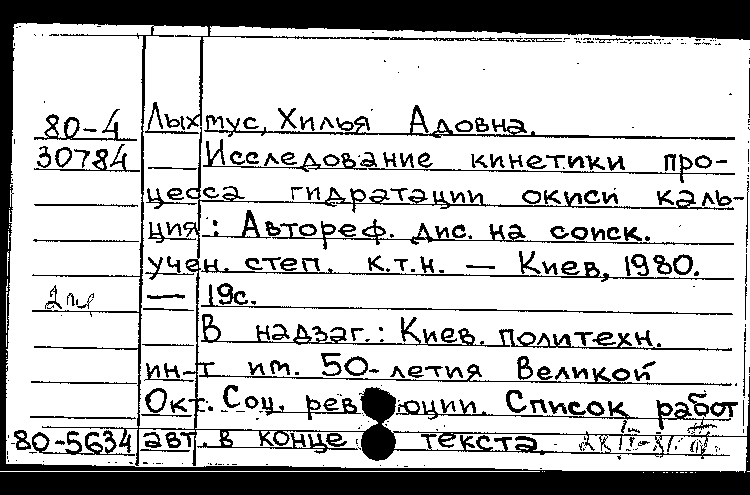 80-4 Лыхмус, Хилья Адовна.
30784 Исследование кинетики про-
цесса гидратации окиси каль-
ция: Автореф. дис. на соиск.
учен. степ. к.т.н. — Киев, 1980.
— 19с.
В надзаг.: Киев. политехн.
ин-т им. 50-летия Великой
Окт. Соц. революции. Список работ
80-5634 авт. в конце текста.